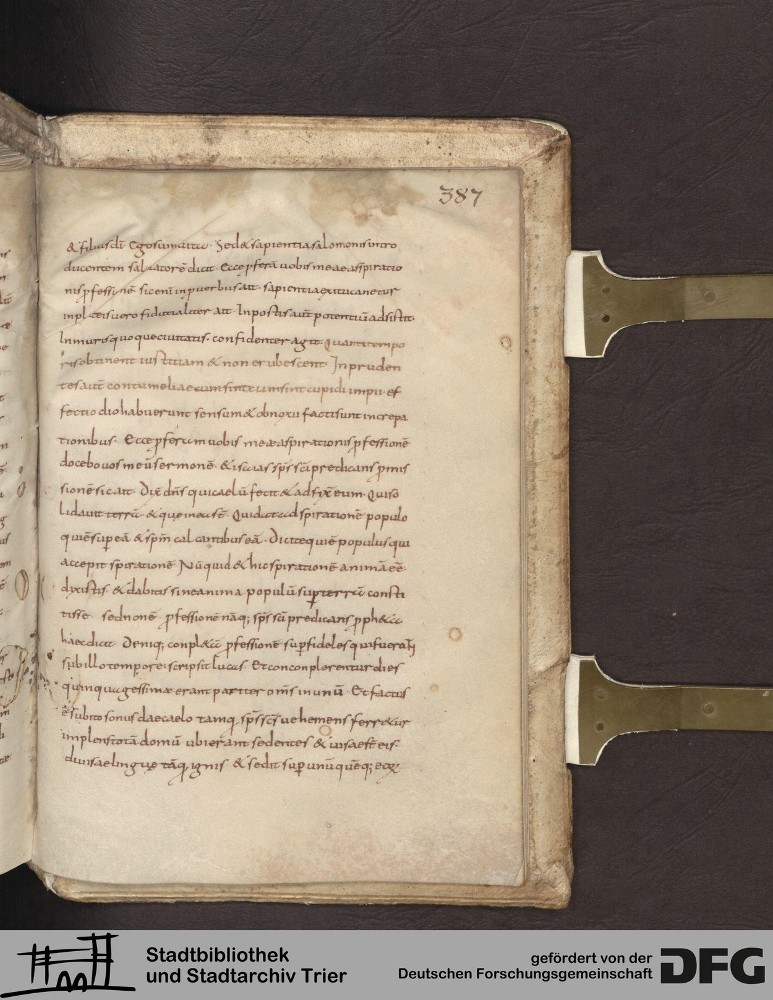 387
& filius dī Sed & sapientia salomonis intro
ducentem salvatorē dicit Ecce pferā uobis meae aspiratio
nis pfessionē sic enī in puerbus ait sapientia exitu canetur
in plateis uero fiducialiter ait In postis aut potentiū adsistit
In muris quoque ciuitatis confidenter agit Quanto tempo
re obtinent iustitiam & non erubescent Inpruden
tes aut contumeliae cum sint cupidi impii ef
fecti odio habuerunt sensum & obnoxii facti sunt increpa
tionibus Ecce pferam uobis meae aspirationis pfessionē
docebo uos meū sermonē & isaias sps scī predicans pmis
sionē sic ait Dix dns qui caelū fecit & adfix eum Qui so
lidauit terrā & que in ea sē Qui dat adspirationē populo
qui ē sup eā & spm calcantibus eā Dicite quiē populus qui
accepit spirationē Nūquid & hic spirationē animā eē
dixistis & dabitis sine anima populū sup terrā consti
tisse sed non ē pfessionē nāq; sps scī predicans pph&a
haec dicit Deniq; conpl&a pfessionē sup fidoles qui fuerat
sub illo tempore scripsit lucas Et con conplerentur dies
quinquagessimae erant pariter oms in unū Et factus
ē subito sonus de caelo tamq sps scs uehemens ferr&ur
implens totā domū ubi erant sedentes & uisae st eis
diuisae linguae tāq ignis & sedit sup unū quēq;
Stadtbibliothek
und Stadtarchiv Trier
gefördert von der
Deutschen Forschungsgemeinschaft
DFG